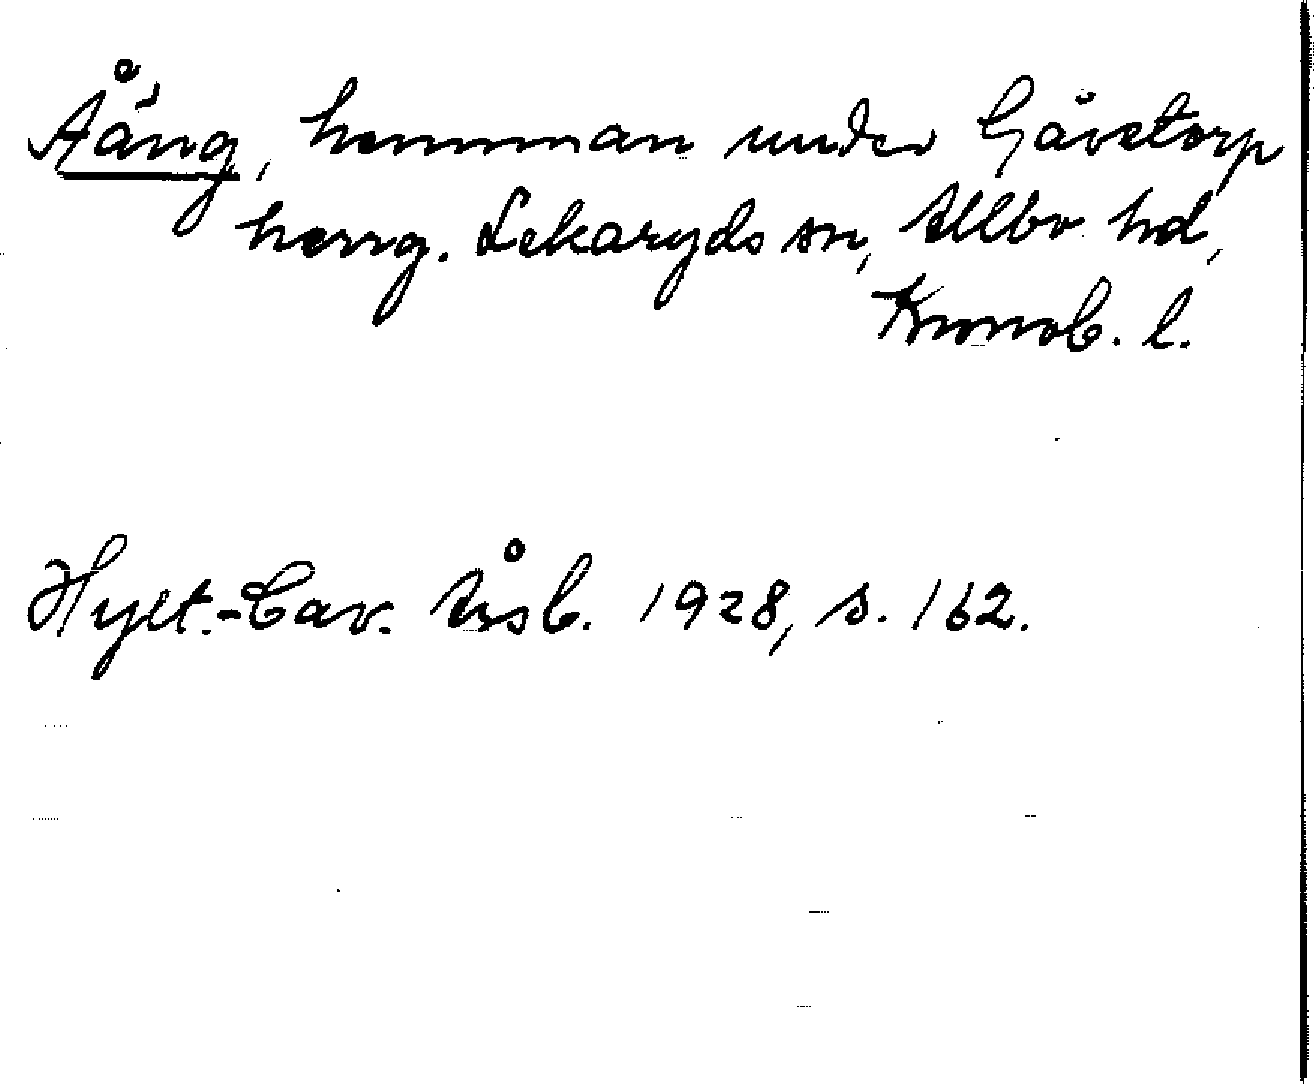 Åäng, hemman under Gåvetorp
herrg. Lekaryds sn, Allbo hd,
Kronob. l.
Hylt.-Cav. Årsb. 1928, s. 162.